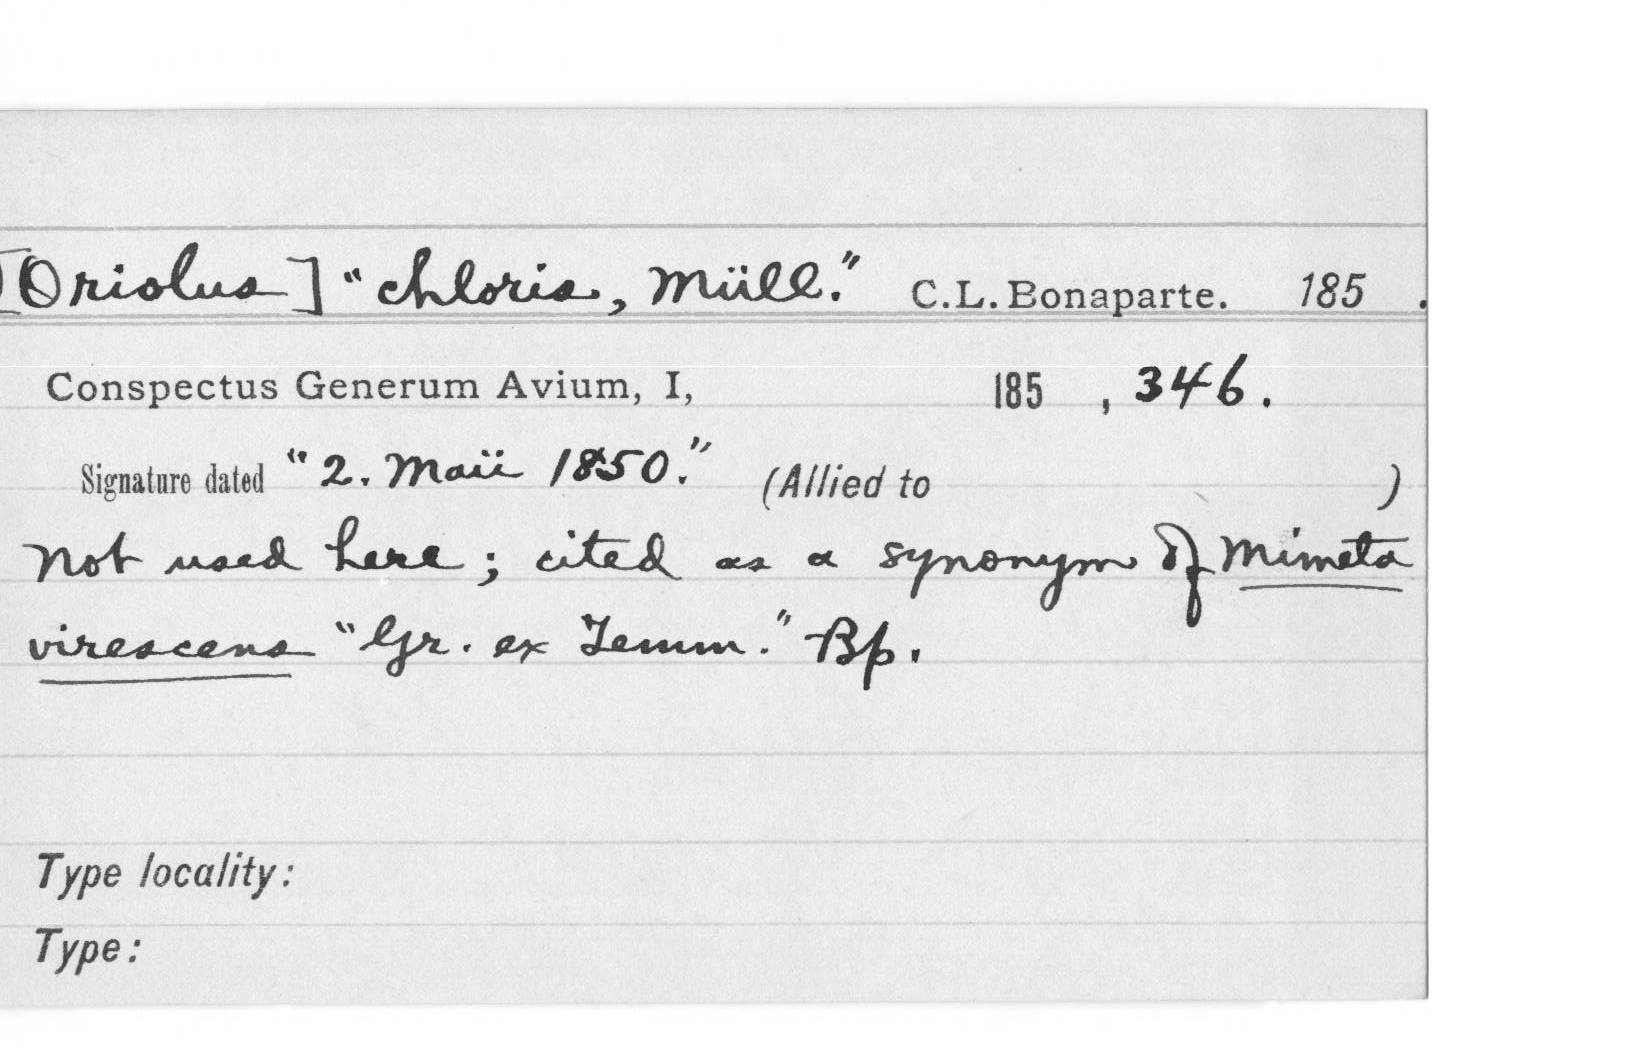 [Oriolus] "chloris, Müll." C.L. Bonaparte. 185 .
Conspectus Generum Avium, I, 185 , 346.
Signature dated "2. Maii 1850." (Allied to )
Not used here; cited as a synonym of Mimeta
virescens "Gr. ex Temm." Bp.
Type locality:
Type: